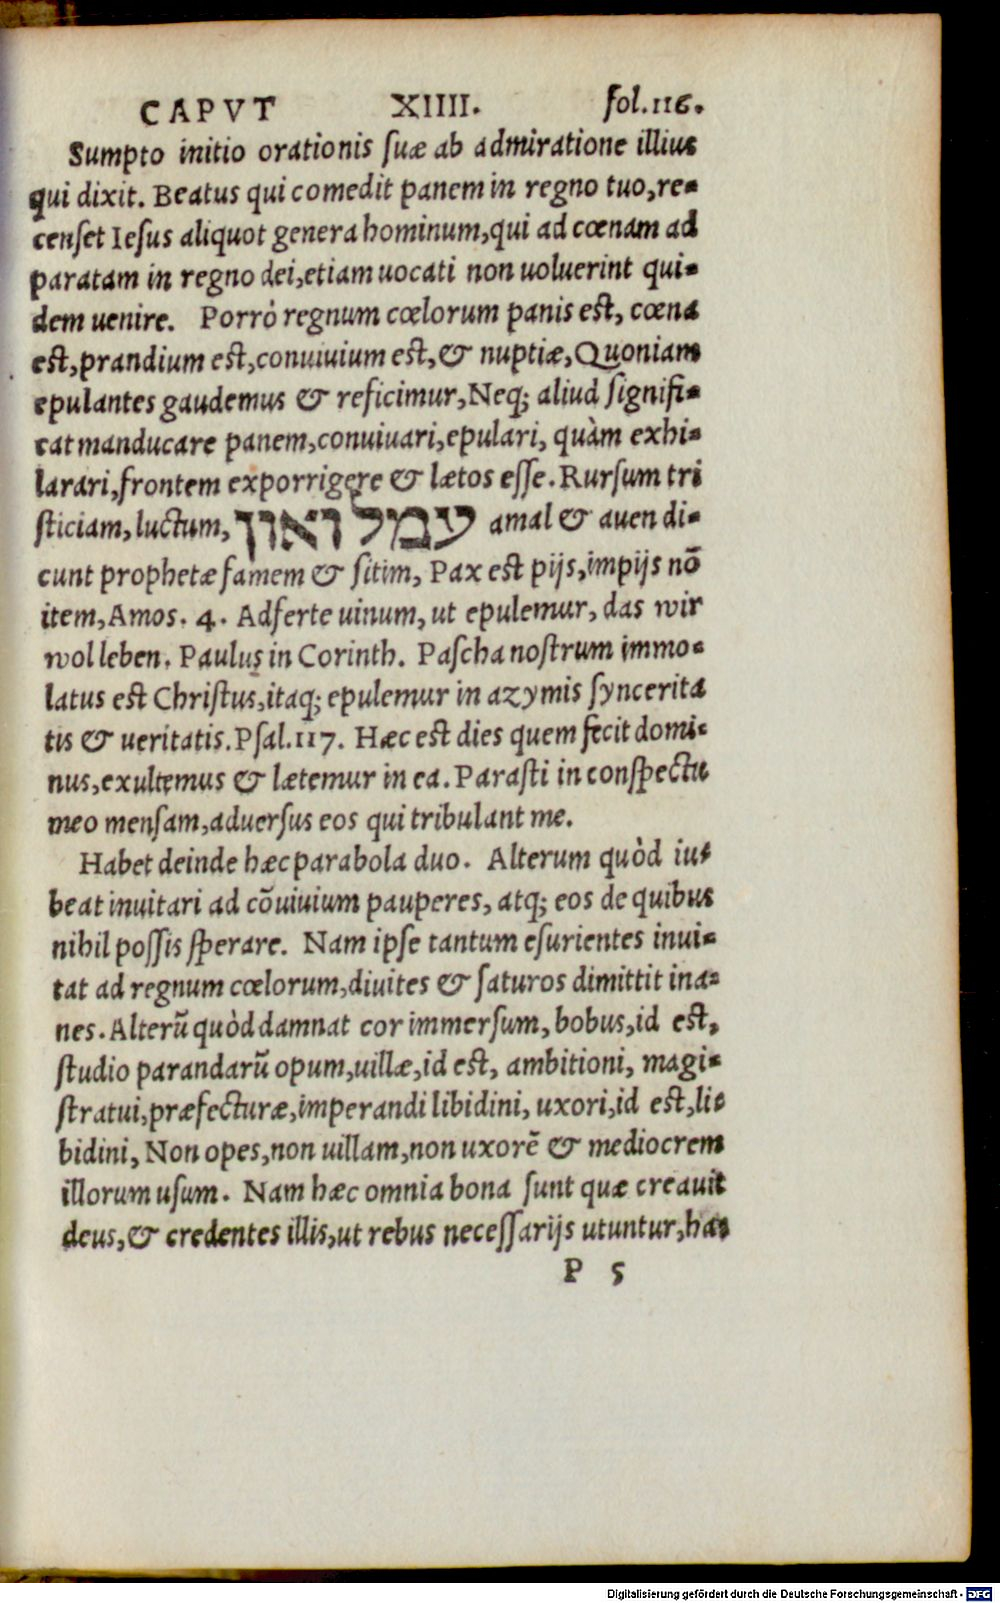 CAPVT XIIII. fol.116.
Sumpto initio orationis suæ ab admiratione illius
qui dixit. Beatus qui comedit panem in regno tuo, re-
censet Iesus aliquot genera hominum, qui ad cœnam ad
paratam in regno dei, etiam uocati non uoluerint qui-
dem uenire. Porrò regnum cœlorum panis est, cœna
est, prandium est, conuiuium est, & nuptiæ, Quoniam
epulantes gaudemus & reficimur, Neq; aliud signifi-
cat manducare panem, conuiuari, epulari, quàm exhi-
larari, frontem exporrigere & lætos esse. Rursum tri
sticiam, luctum, עמל ואון amal & auen di-
cunt prophetæ famem & sitim, Pax est pijs, impijs nō
item, Amos. 4. Adferte uinum, ut epulemur, das wir
wol leben. Paulus in Corinth. Pascha nostrum immo-
latus est Christus, itaq; epulemur in azymis syncerita
tis & ueritatis. Psal. 117. Hæc est dies quem fecit domi-
nus, exultemus & lætemur in ea. Parasti in conspectu
meo mensam, aduersus eos qui tribulant me.
Habet deinde hæc parabola duo. Alterum quòd iu-
beat inuitari ad cōuiuium pauperes, atq; eos de quibus
nihil possis sperare. Nam ipse tantum esurientes inui-
tat ad regnum cœlorum, diuites & saturos dimittit ina-
nes. Alterū quòd damnat cor immersum, bobus, id est,
studio parandarū opum, uillæ, id est, ambitioni, magi-
stratui, præfecturæ, imperandi libidini, uxori, id est, li-
bidini, Non opes, non uillam, non uxorē & mediocrem
illorum usum. Nam hæc omnia bona sunt quæ creauit
deus, & credentes illis, ut rebus necessarijs utuntur, has
P 5
Digitalisierung gefördert durch die Deutsche Forschungsgemeinschaft - DFG